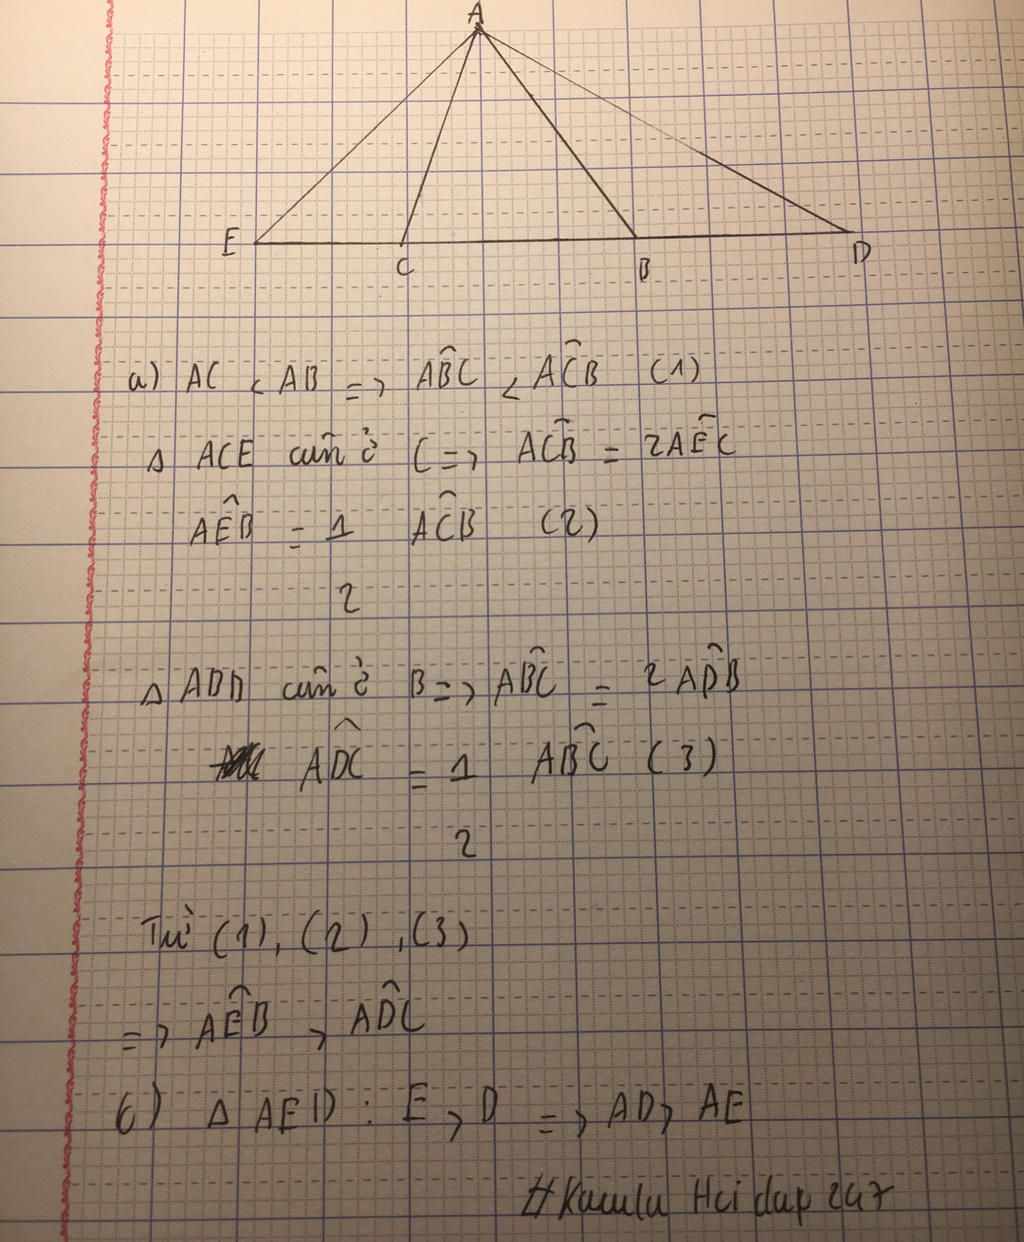 A
E
C
B
D
a) AC < AB => ABC^ < ACB^ (1)
Δ ACE cân ở C => ACB^ = 2AEC^
AEB^ = 1 ACB^ (2)
2
Δ ABD cân ở B => ABC^ = 2 ADB^
ADC^ = 1 ABC^ (3)
2
Từ (1), (2), (3)
=> AEB^ > ADC^
b) Δ AED : E > D => AD > AE